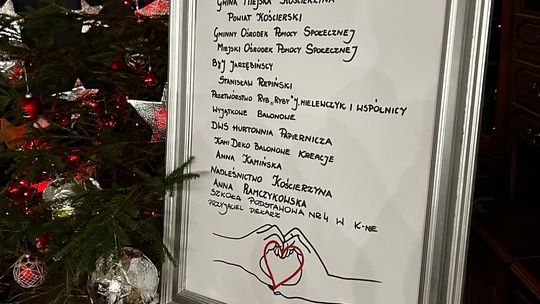 Gmina Miejska Kościerzyna
Powiat Kościerski
Gminny Ośrodek Pomocy Społecznej
Miejski Ośrodek Pomocy Społecznej
Byj Jarzębińscy
Stanisław Rzepiński
Przetwórstwo Ryb „Ryby" J. Mielewczyk i Wspólnicy
Wyjątkowe Balonowe
DWS Hurtownia Papiernicza
Kami Deko Balonowe Kreacje
Anna Kamińska
Nadleśnictwo Kościerzyna
Anna Ramczykowska
Szkoła Podstawowa nr 4 w K-nie
Przyjaciel Piekarz